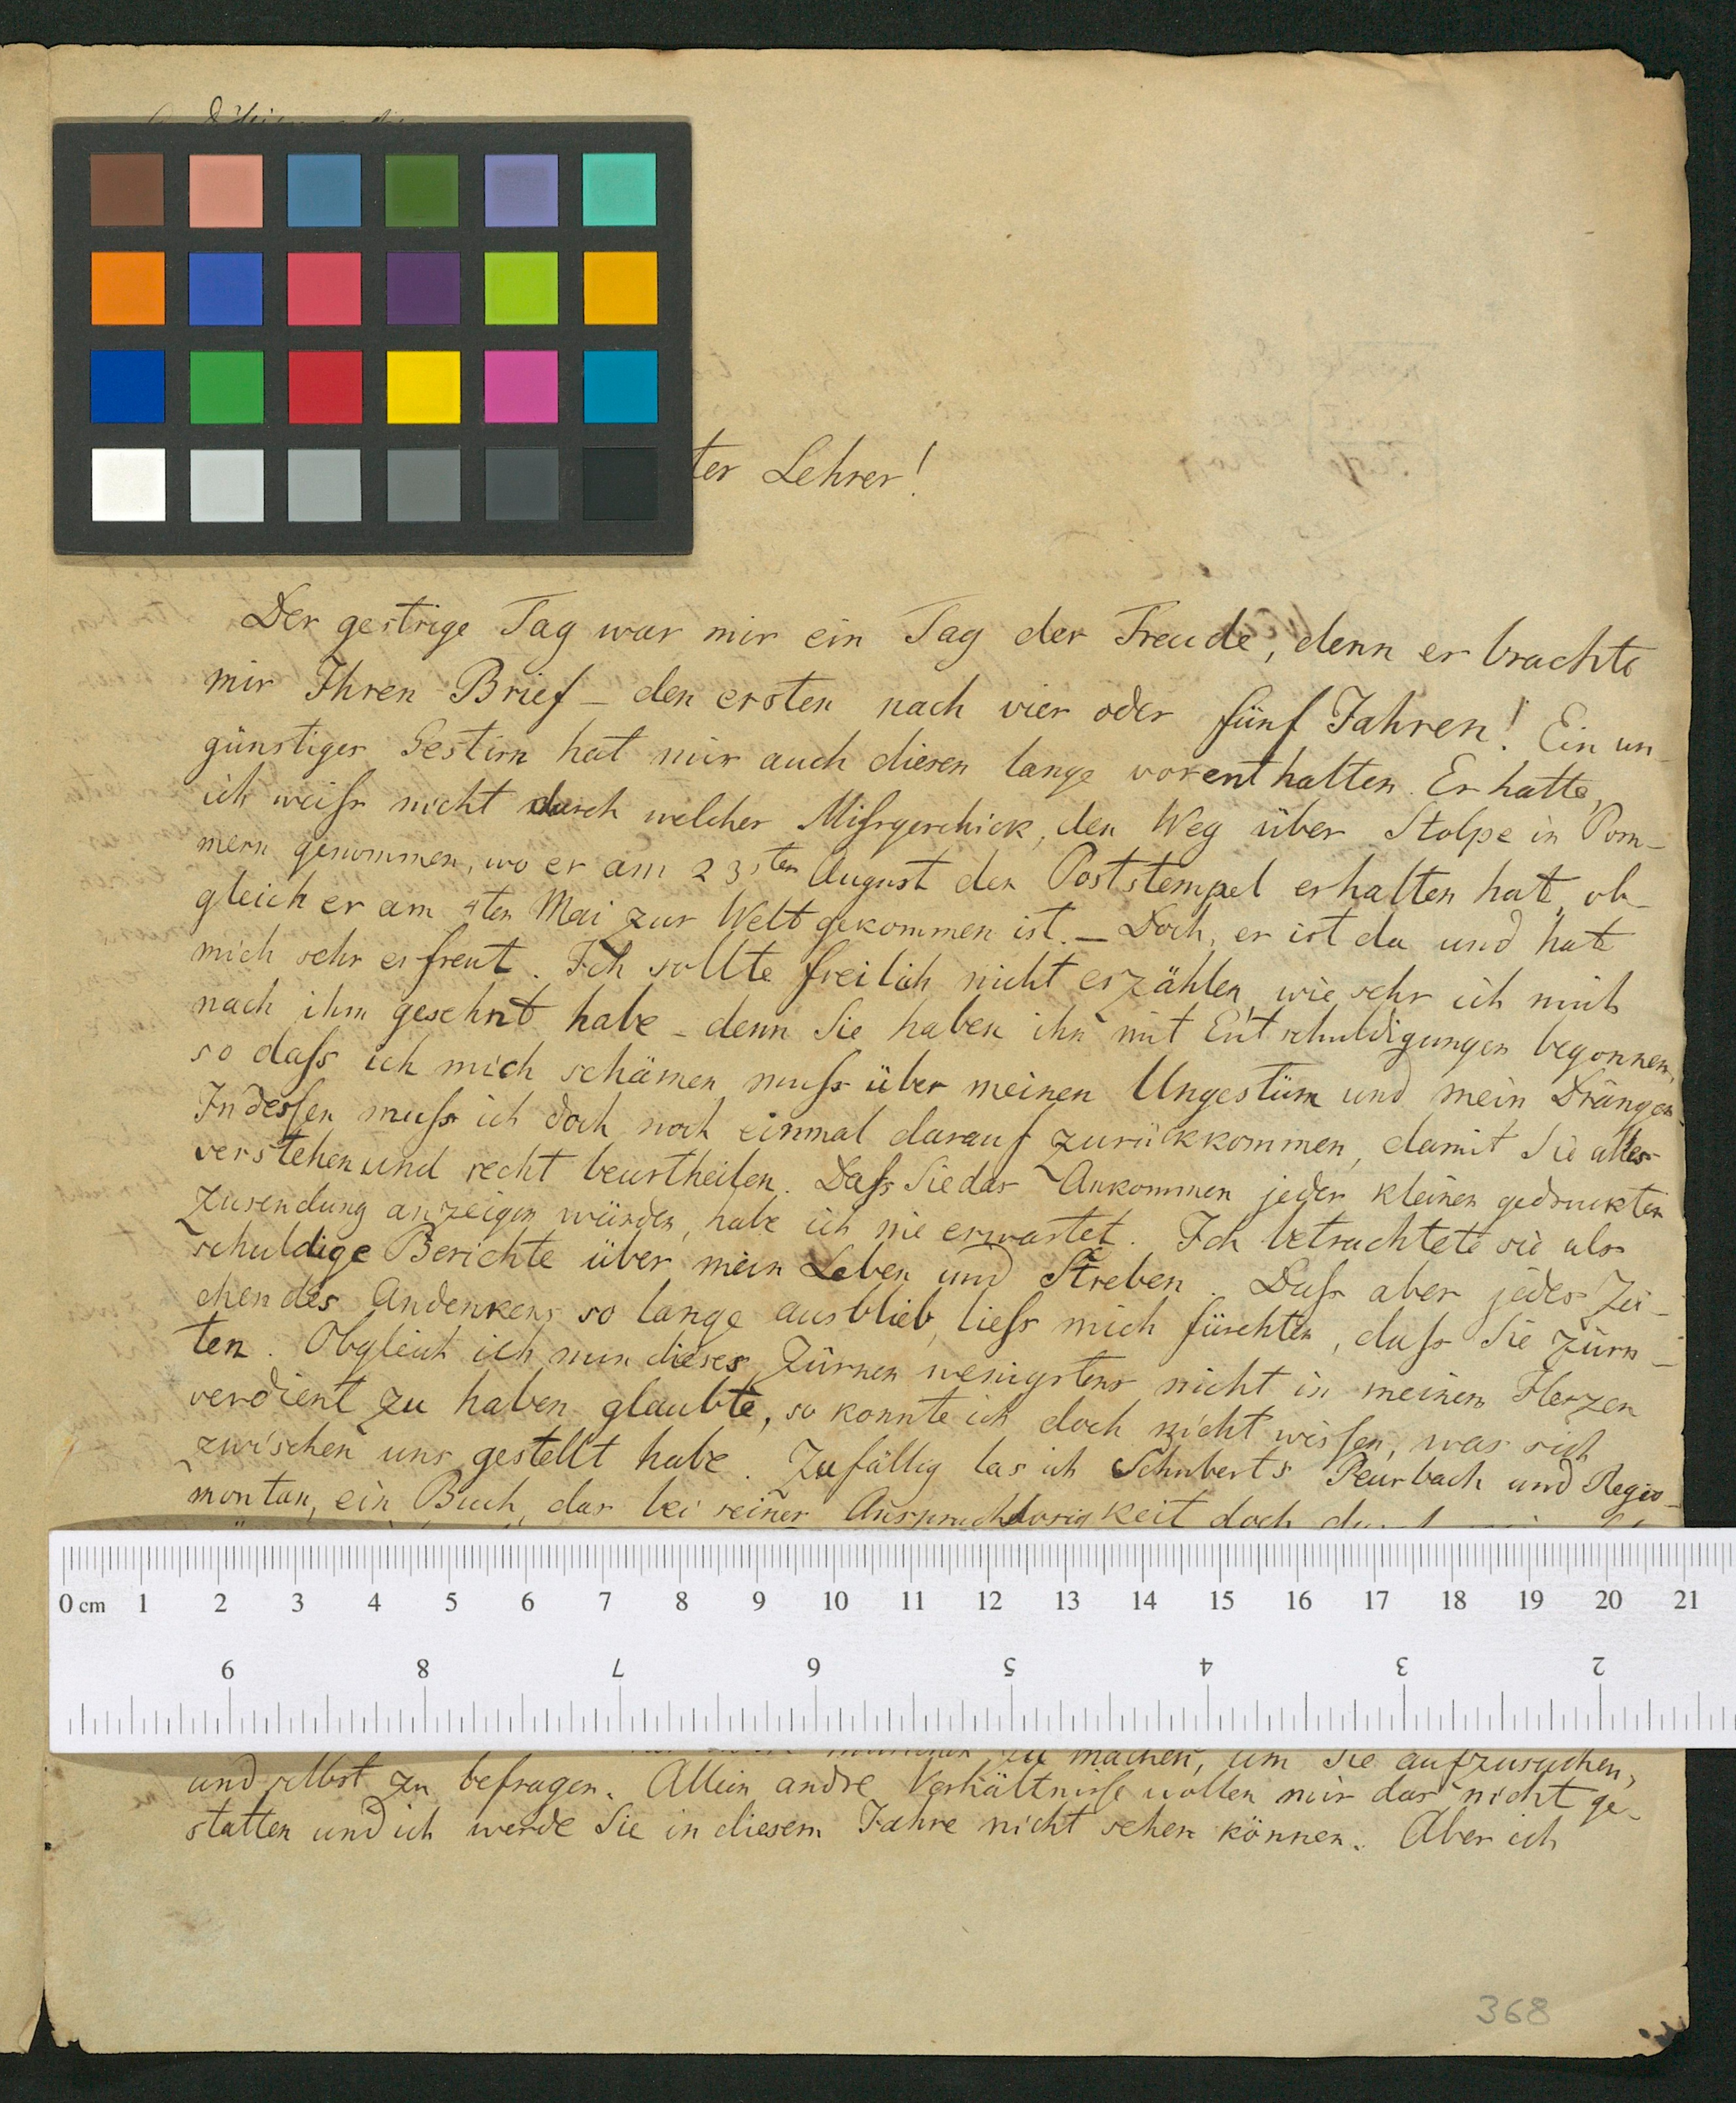 ter Lehrer!
Der gestrige Tag war mir ein Tag der Freude, denn er brachte
mir Ihren Brief – den ersten nach vier oder fünf Jahren! Ein un-
günstiger Gestirn hat mir auch diesen lange vorenthalten. Er hatte,
ich weiſs nicht durch welches Miſsgeschick, den Weg über Stolpe in Pom-
mern genommen, wo er am 23sten August den Poststempel erhalten hat, ob-
gleich er am 4ten Mai zur Welt gekommen ist. – Doch, er ist da und hat
mich sehr erfreut. Ich sollte freilich nicht erzählen, wie sehr ich mich
nach ihm gesehnt habe – denn Sie haben ihn mit Entschuldigungen begonnen,
so daſs ich mich schämen muſs über meinen Ungestüm und mein Drängen.
Indeſsen muſs ich doch noch einmal darauf zurückkommen, damit Sie alles
verstehen und recht beurtheilen. Daſs Sie das Ankommen jeder kleinen gedruckten
Zusendung anzeigen würden, habe ich nie erwartet. Ich betrachtete sie als
schuldige Berichte über mein Leben und Streben. Daſs aber jedes Zei-
chen des Andenkens so lange ausblieb, lieſs mich fürchten, daſs Sie zürn-
ten. Obgleich ich nun dieses Zürnen wenigstens nicht in meinem Herzen
verdient zu haben glaubte, so konnte ich doch nicht wiſsen, was sich
zwischen uns gestellt habe. Zufällig las ich Schuberts Peurbach und Regio-
montan, ein Buch, das bei seiner Anspruchslosigkeit doch
0 cm 1 2 3 4 5 6 7 8 9 10 11 12 13 14 15 16 17 18 19 20 21
9 8 7 6 5 4 3 2
zu machen, um Sie aufzusuchen,
und selbst zu befragen. Allein andre Verhältniſse wollen mir das nicht ge-
statten und ich werde Sie in diesem Jahre nicht sehen können. Aber ich
368